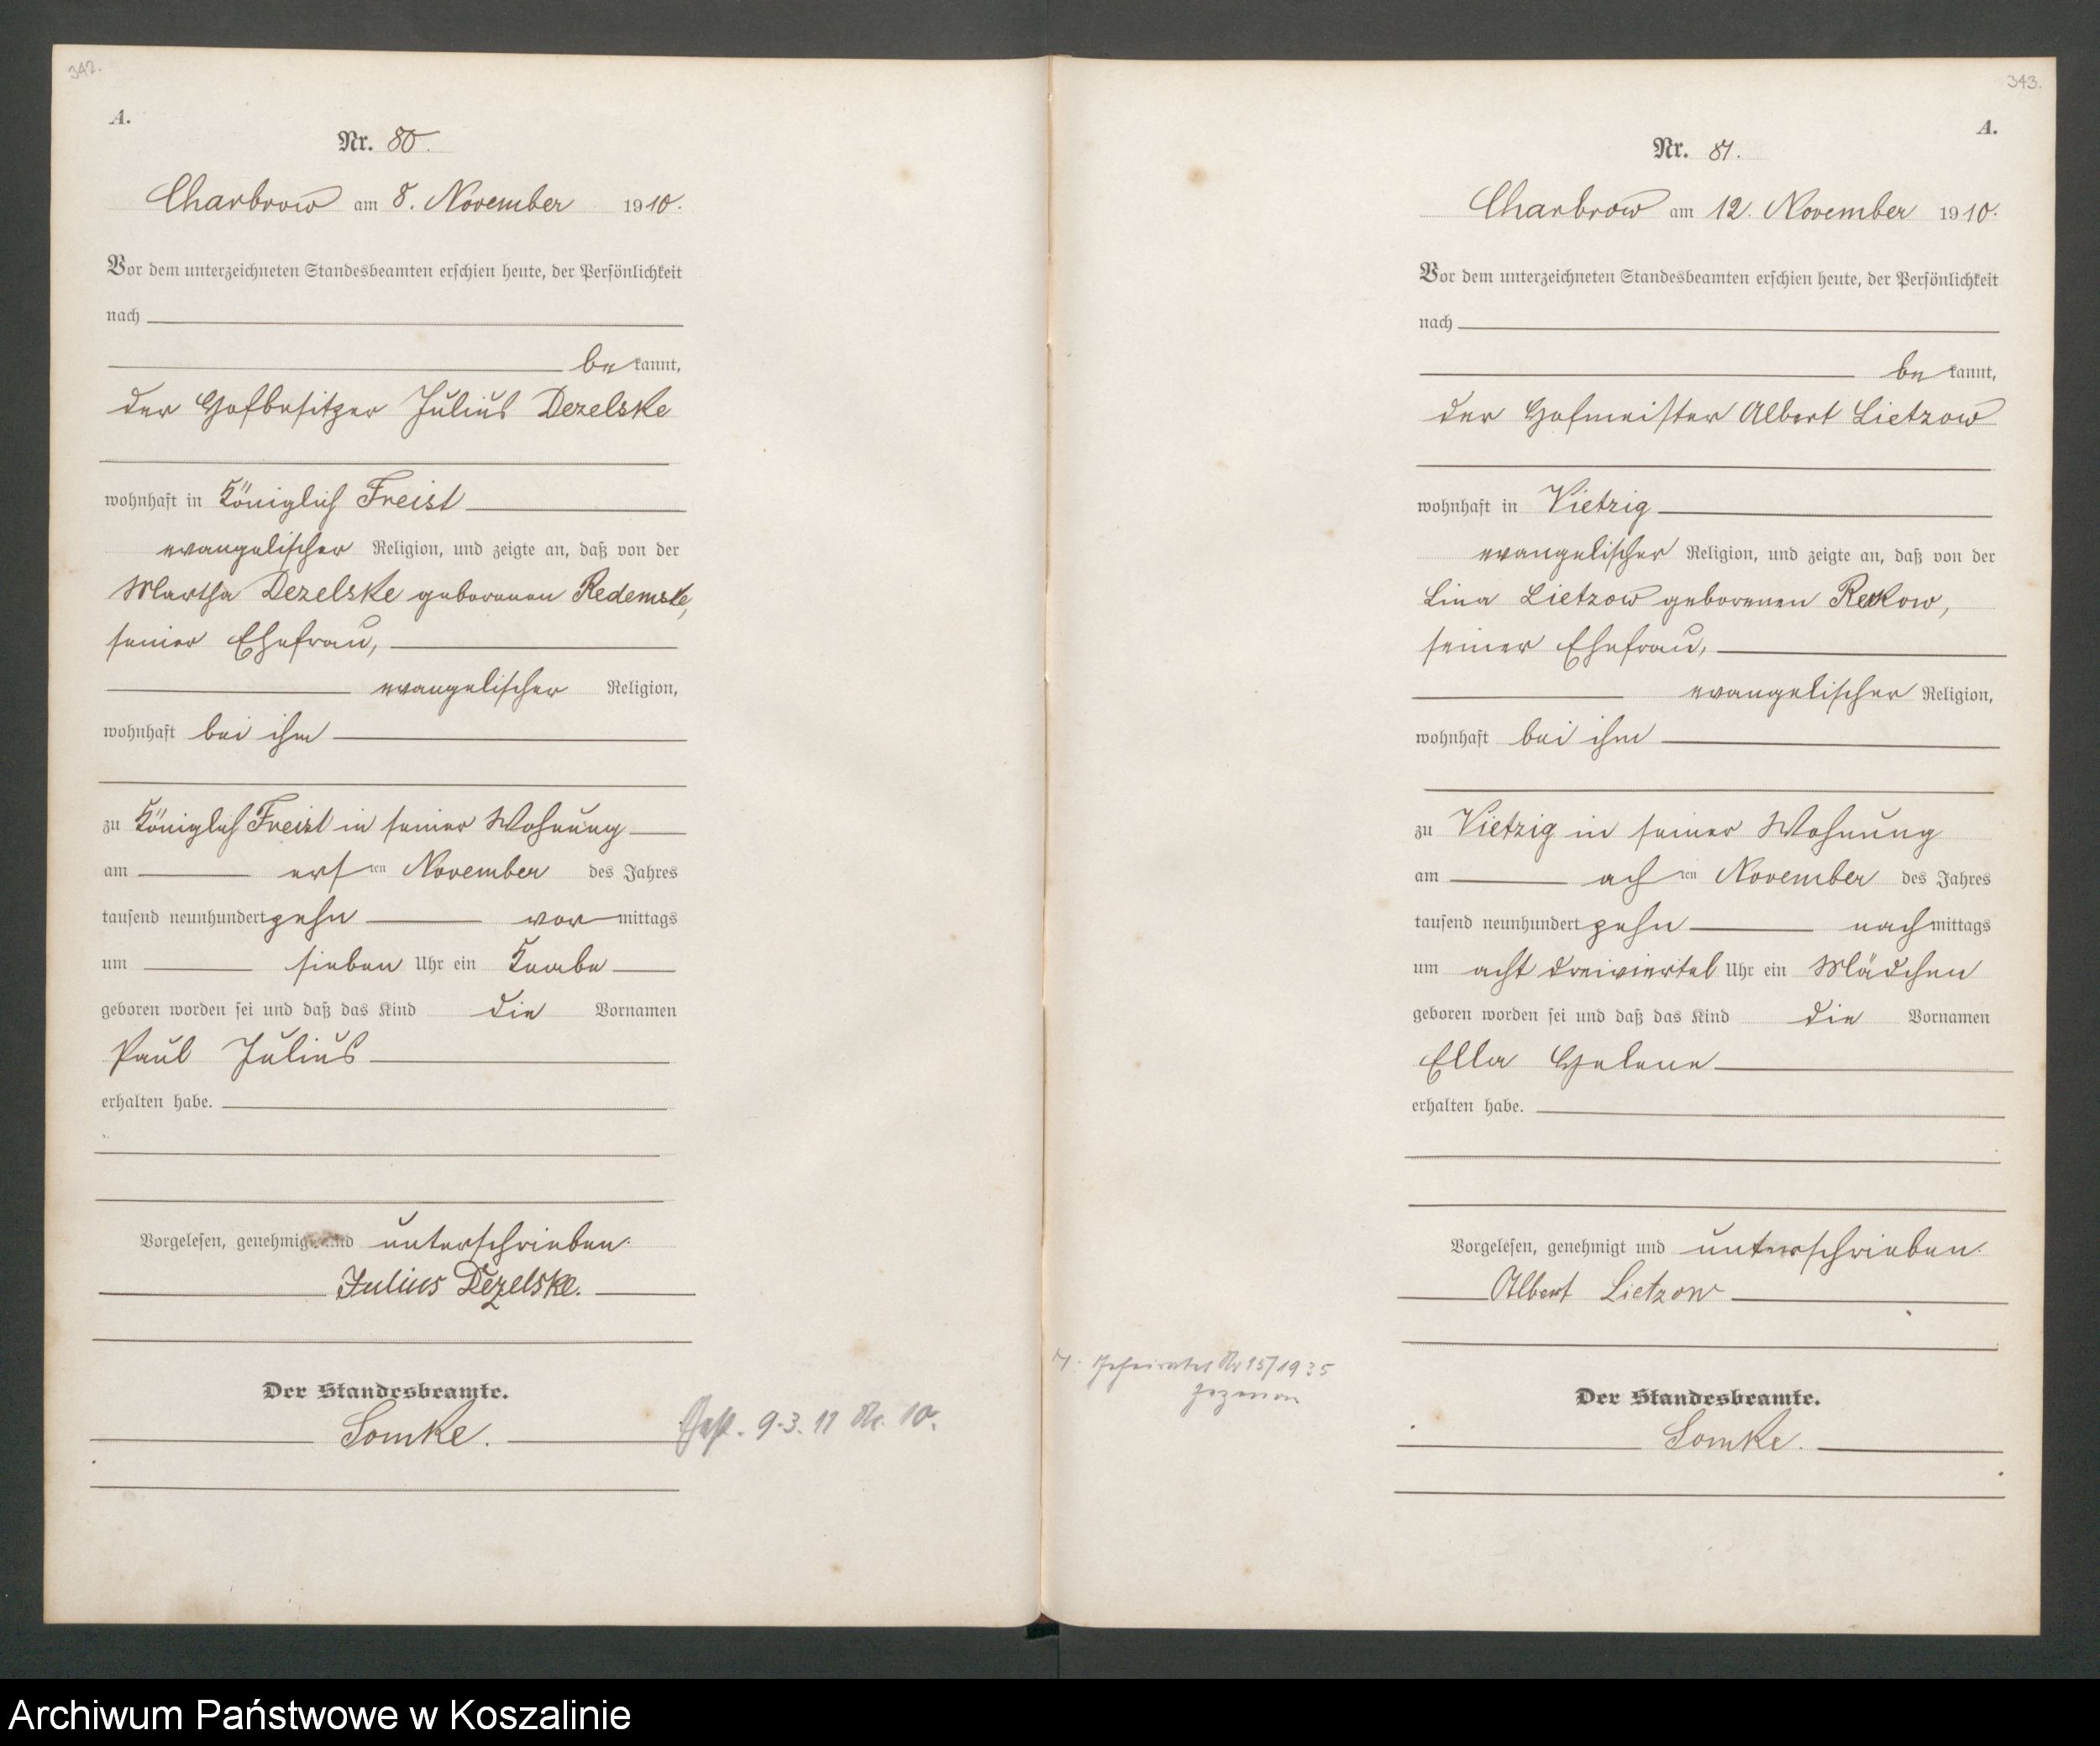 342.
A.
Nr. 80.
Charbrow am 8. November 1910.
Vor dem unterzeichneten Standesbeamten erschien heute, der Persönlichkeit
nach
bekannt,
der Hofbesitzer Julius Dezelske
wohnhaft in Königlich Freist
evangelischer Religion, und zeigte an, daß von der
Martha Dezelske geborenen Redemske,
seiner Ehefrau,
evangelischer Religion,
wohnhaft bei ihm
zu Königlich Freist in seiner Wohnung
am ersten November des Jahres
tausend neunhundert zehn vormittags
um sieben Uhr ein Knabe
geboren worden sei und daß das Kind die Vornamen
Paul Julius
erhalten habe.
Vorgelesen, genehmigt und unterschrieben.
Julius Dezelske.
Der Standesbeamte.
Somke.
Gest. 9.3.11 Nr. 10.
343.
A.
Nr. 81.
Charbrow am 12. November 1910.
Vor dem unterzeichneten Standesbeamten erschien heute, der Persönlichkeit
nach
bekannt,
der Hofmeister Albert Lietzow
wohnhaft in Vietzig
evangelischer Religion, und zeigte an, daß von der
Lina Lietzow geborenen Rekow,
seiner Ehefrau,
evangelischer Religion,
wohnhaft bei ihm
zu Vietzig in seiner Wohnung
am achten November des Jahres
tausend neunhundert zehn nachmittags
um acht dreiviertel Uhr ein Mädchen
geboren worden sei und daß das Kind die Vornamen
Ella Helene
erhalten habe.
Vorgelesen, genehmigt und unterschrieben.
Albert Lietzow
Geheiratet Nr 15/1935
Der Standesbeamte.
Somke.
Archiwum Państwowe w Koszalinie